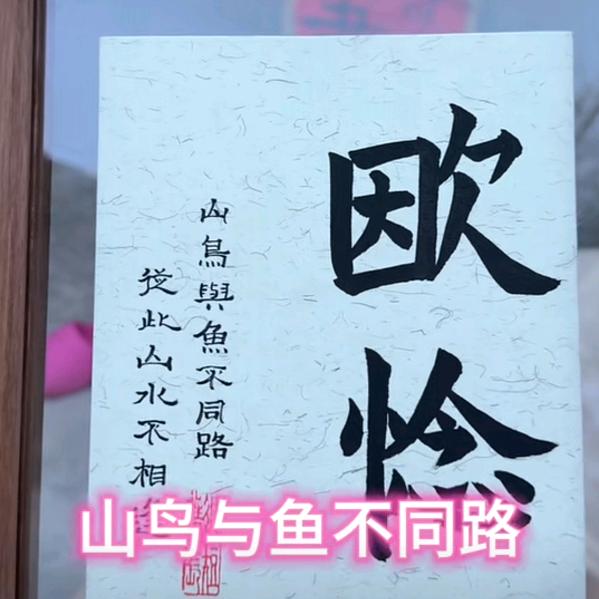 欭惗
山鳥與魚不同路
從此山水不相
山鸟与鱼不同路